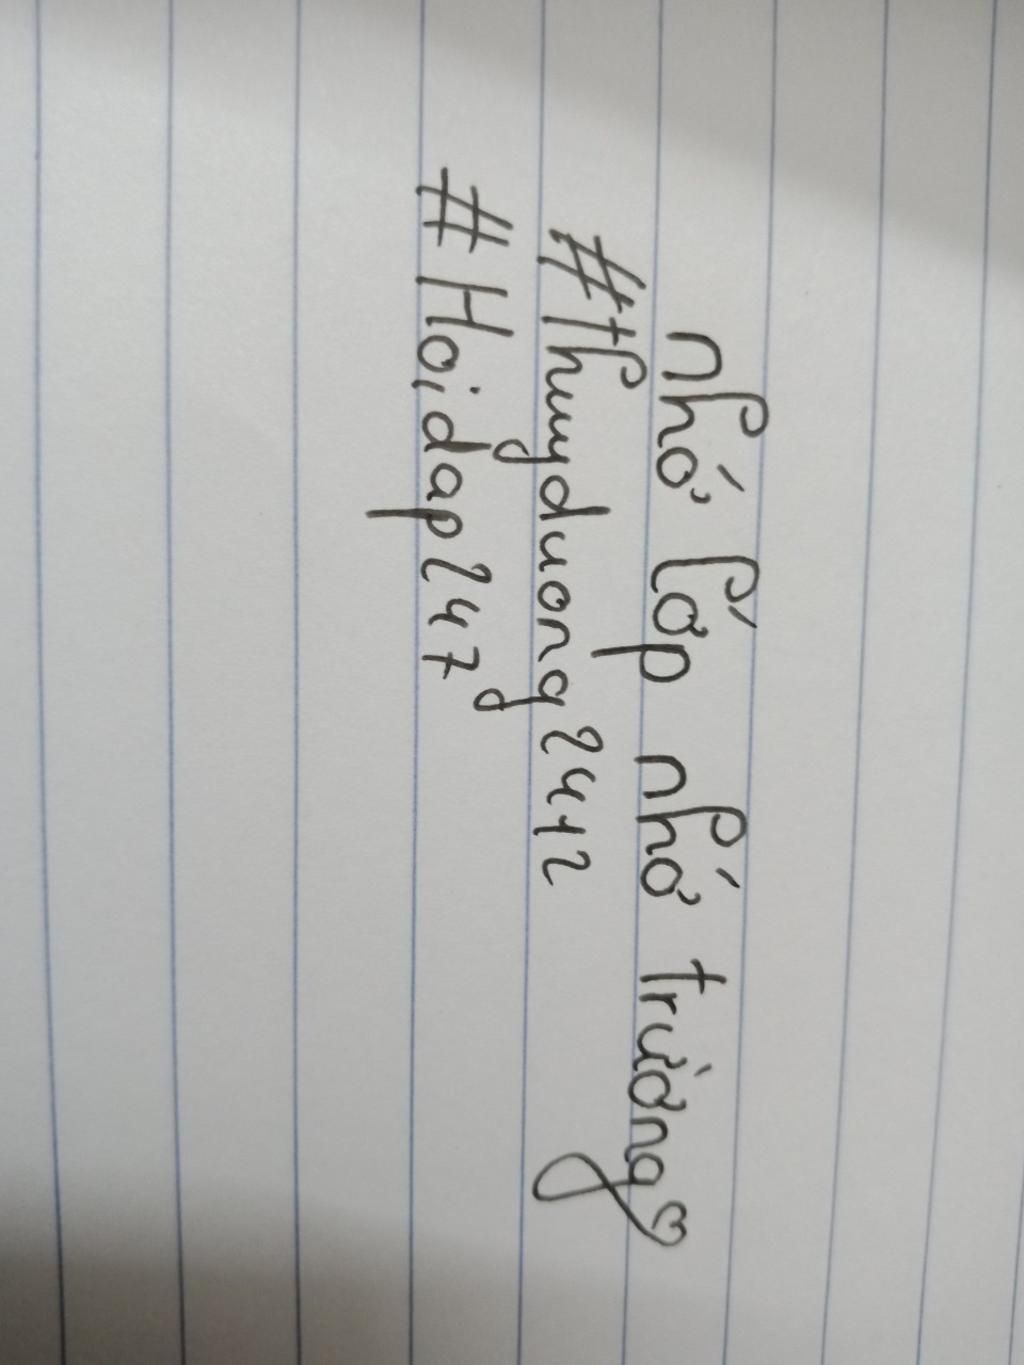 nhớ lớp nhớ trường
#thuyduong2412
#Hoidap247